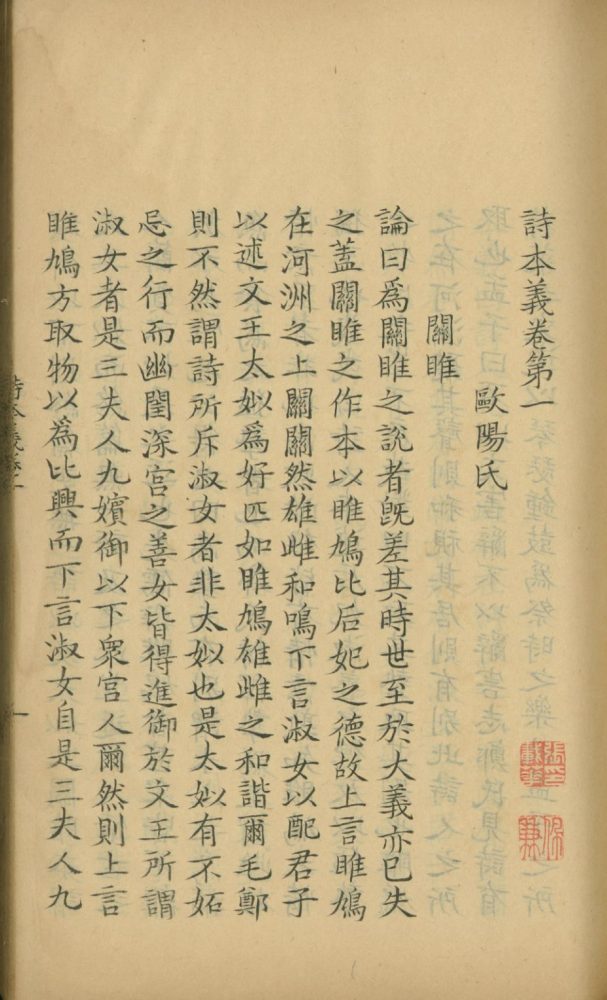 詩本義卷第一
歐陽氏
關雎
論曰為關雎之說者既差其時世至於大義亦已失
之蓋關雎之作本以雎鳩比后妃之德故上言雎鳩
在河洲之上關關然雄雌和鳴下言淑女以配君子
以述文王太姒為好匹如雎鳩雄雌之和諧爾毛鄭
則不然謂詩所斥淑女者非太姒也是太姒有不妬
忌之行而幽閨深宮之善女皆得進御於文王所謂
淑女者是三夫人九嬪御以下衆宮人爾然則上言
雎鳩方取物以為比興而下言淑女自是三夫人九
詩本義卷一
一